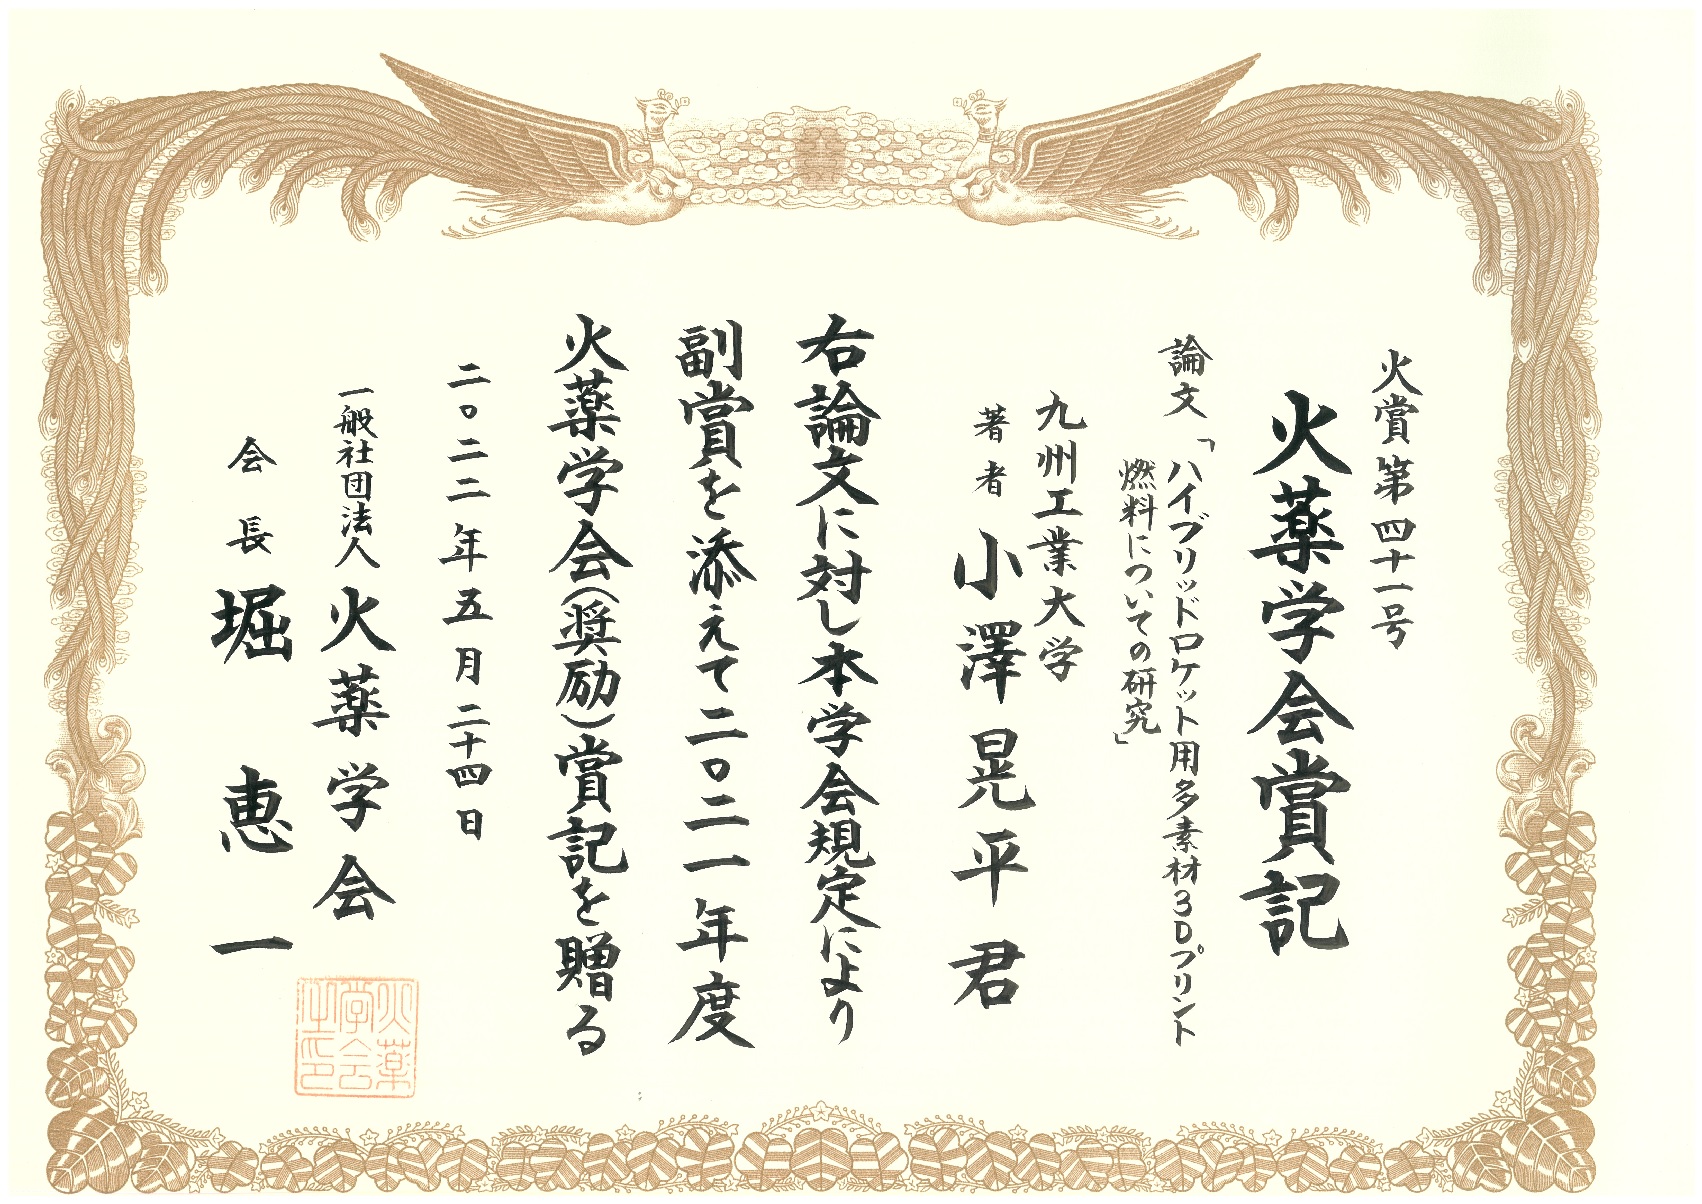 火賞第四十一号
火薬学会賞記
論文「ハイブリッドロケット用多素材3Dプリント
燃料についての研究」
九州工業大学
著者 小澤晃平君
右論文に対し本学会規定により
副賞を添えて二〇二一年度
火薬学会(奨励)賞記を贈る
二〇二二年五月二十四日
一般社団法人 火薬学会
会長 堀恵一
火薬
学会
之印